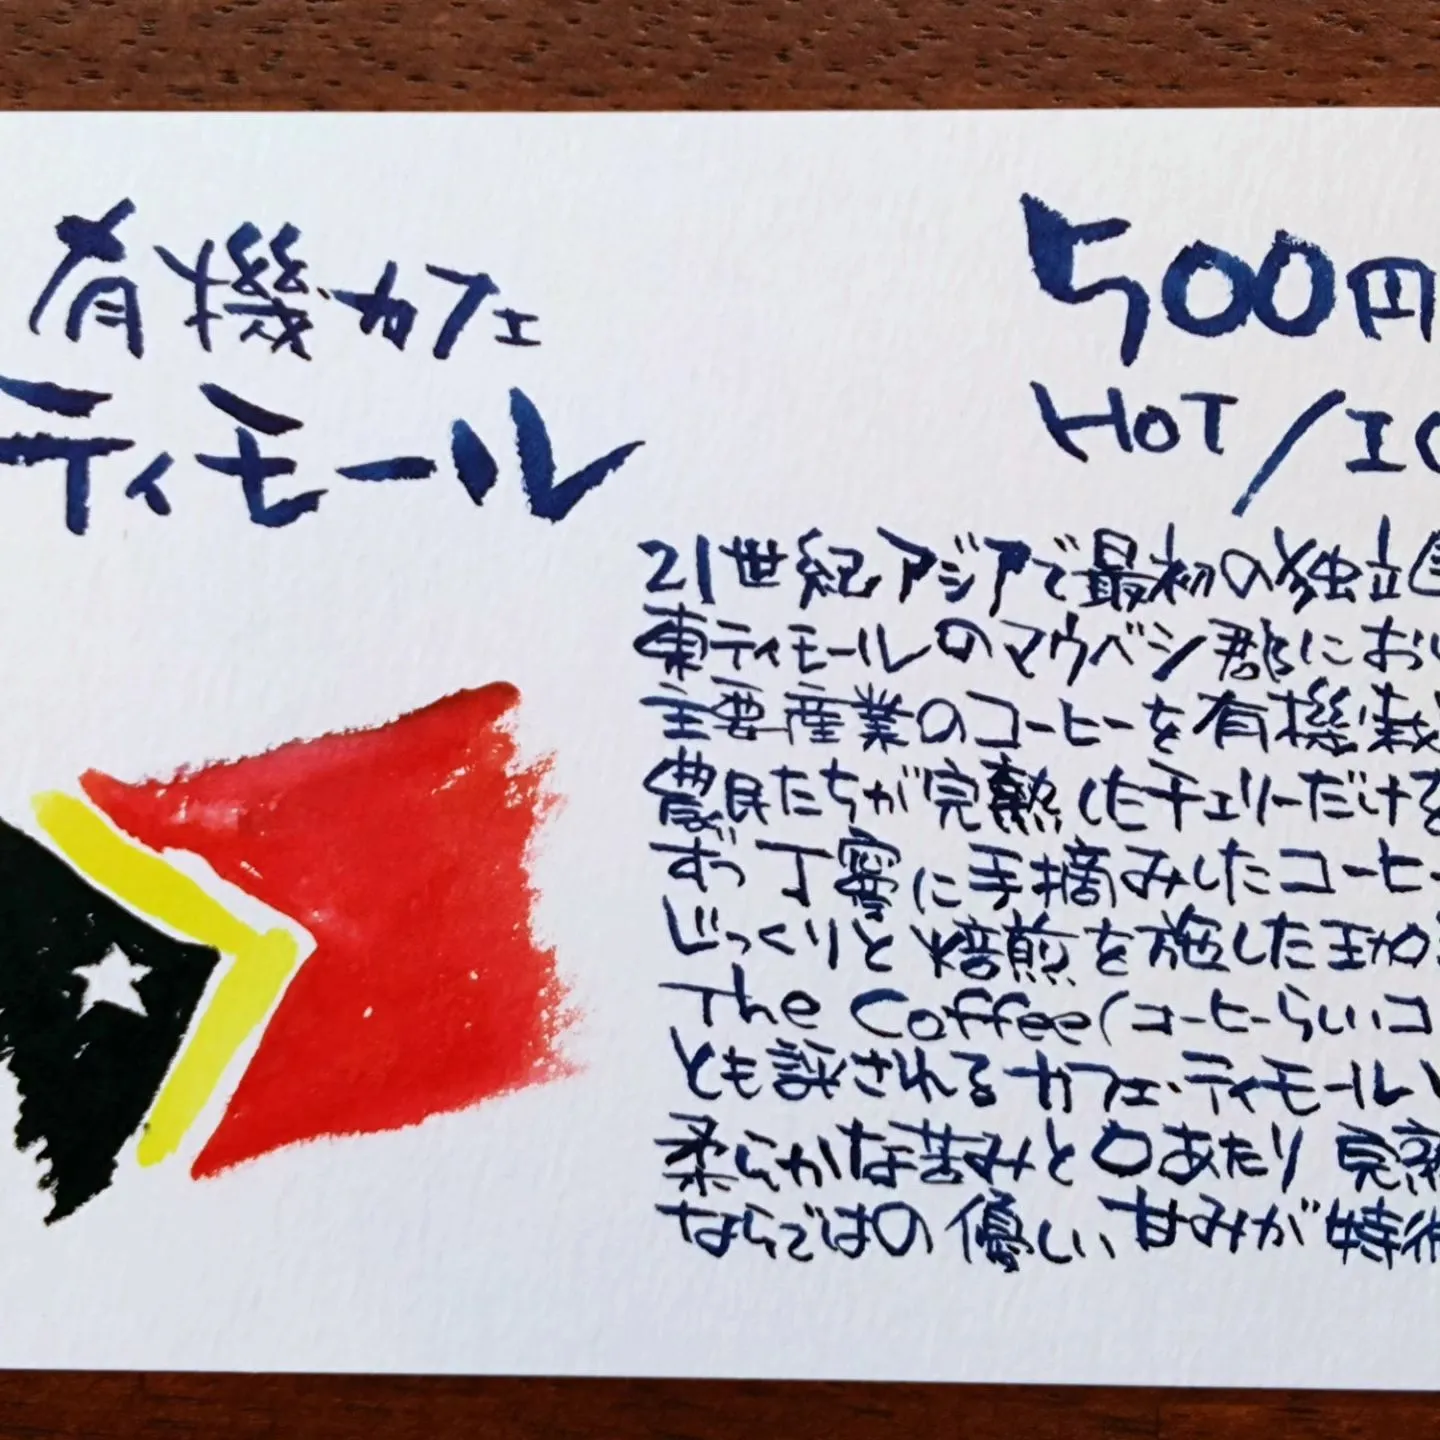 有機カフェ
ティモール
500円
HOT/IC
21世紀アジアで最初の独立
東ティモールのマウベシ郡にお
主要産業のコーヒーを有機栽
農民たちが完熟したチェリーだけを
ずつ丁寧に手摘みしたコーヒー
じっくりと焙煎を施した
The Coffee(コーヒーらしいコ
とも評されるカフェ・ティモール
柔らかな苦みと口あたり 完熟
ならではの優しい甘みが特徴